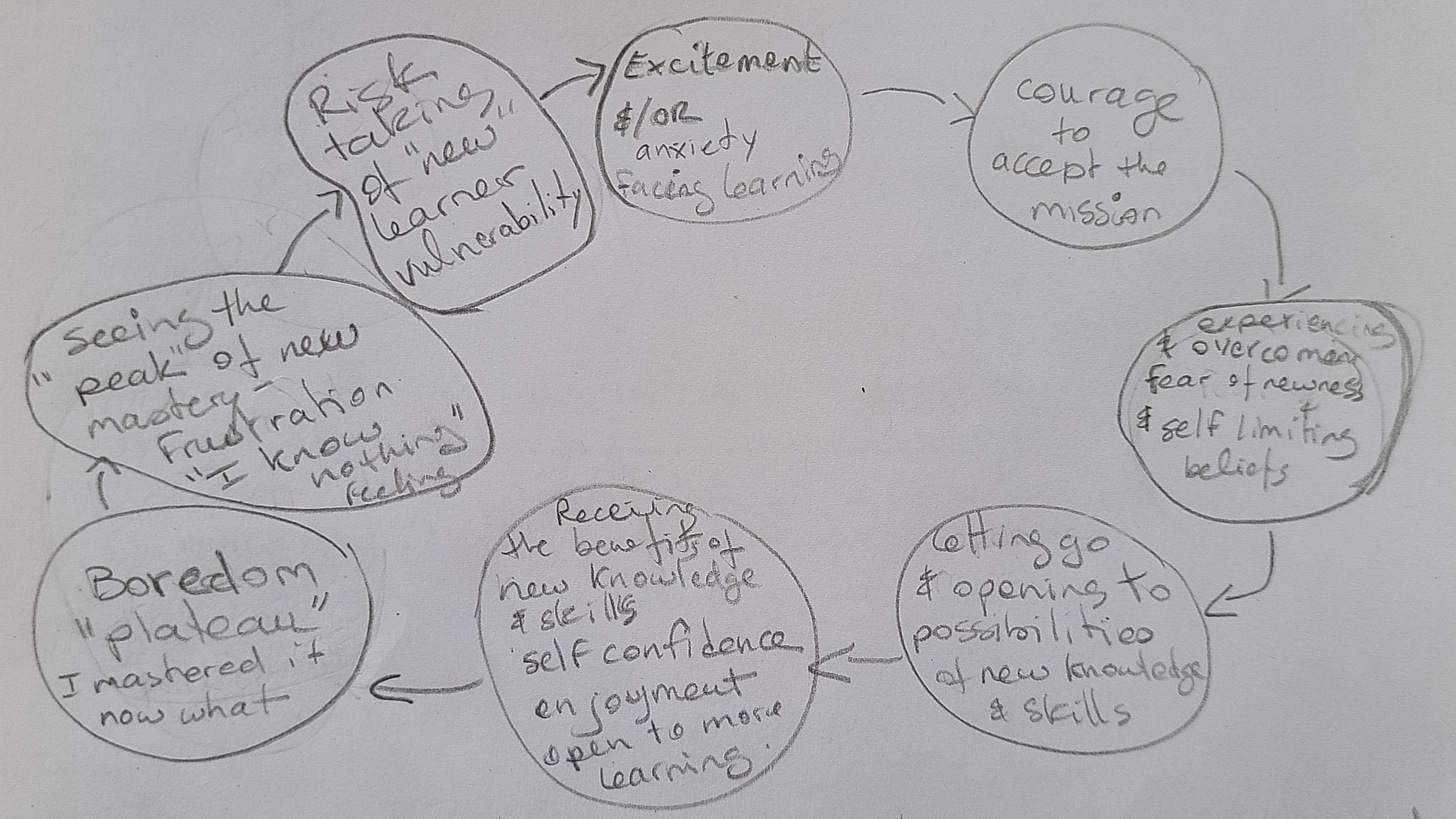 Risk
taking
of "new"
learner
vulnerability
Excitement
&/OR
anxiety
facing learning
courage
to
accept the
mission
experiencing
& overcoment
fear of newness
& self limiting
beliefs
Letting go
& opening to
possibilities
of new knowledge
& skills
Receiving
the benefits of
new knowledge
& skills
self confidence
enjoyment
open to more
learning.
Boredom
"plateau"
I mastered it
now what
Seeing the
"peak" of new
mastery-
Frustration
"I know
nothing"
feeling